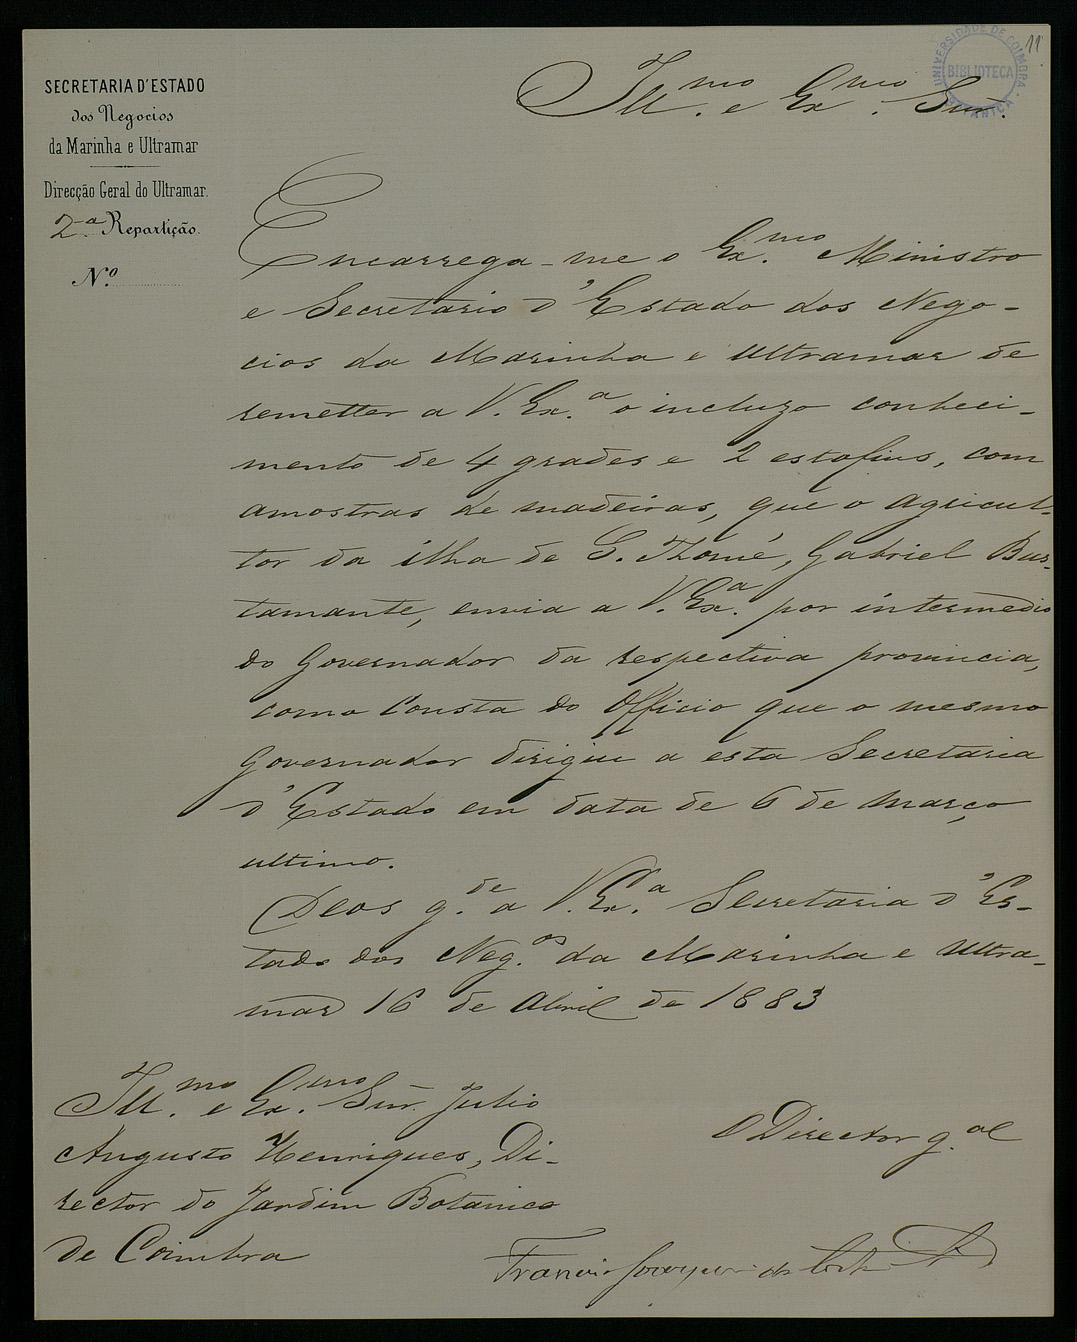 11
UNIVERSIDADE DE COIMBRA
BIBLIOTECA
BOTANICA
SECRETARIA D'ESTADO
dos Negocios
da Marinha e Ultramar
Direcção Geral do Ultramar.
2.a Repartição.
N.o
Ill.mo e Ex.mo Snr.
Encarrega-me o Ex.mo Ministro
e Secretario d'Estado dos Nego-
cios da Marinha e Ultramar de
remetter a V. Ex.a o incluzo conheci-
mento de 4 grades e 2 estofins, com
amostras de madeiras, que o agricul-
tor da ilha de S. Thomé, Gabriel Bus-
tamante, envia a V. Ex.a por intermedio
do Governador da respectiva provincia,
como consta do Officio que o mesmo
Governador dirigiu a esta Secretaria
d'Estado em data de 6 de março
ultimo.
Deos g.de a V. Ex.a Secretaria d'Es-
tado dos Neg.os da Marinha e Ultra-
mar 16 de Abril de 1883
Ill.mo e Ex.mo Snr. Julio
Augusto Henriques, Di-
rector do Jardim Botanico
de Coimbra
O Director g.al
Francisco Joaquim da Costa e S.a